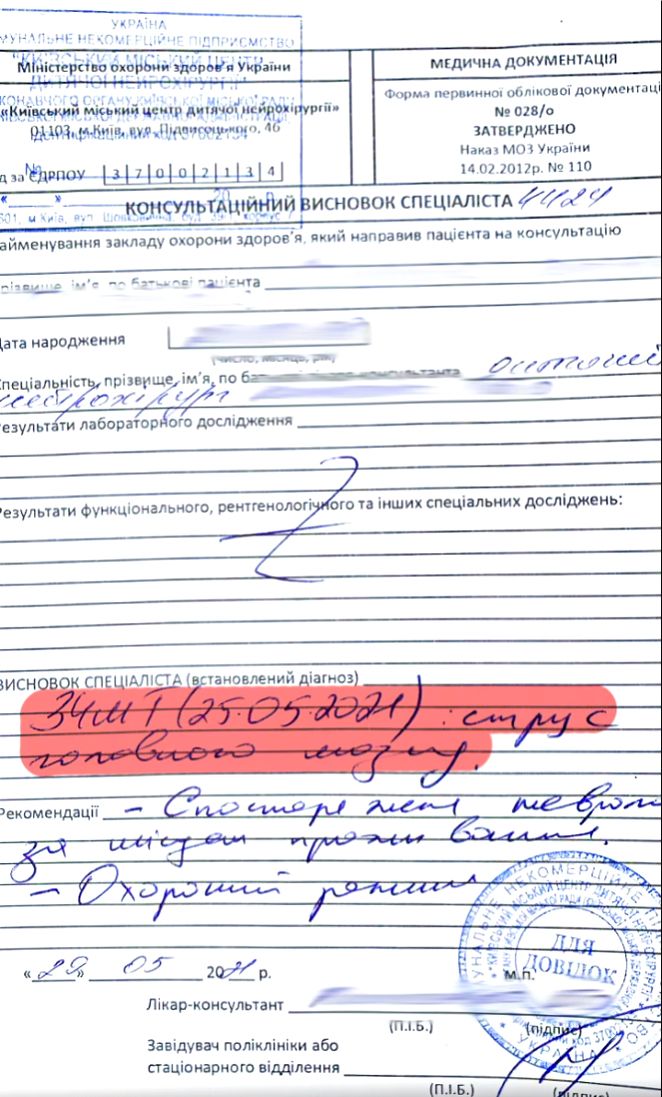 УКРАЇНА
МУНАЛЬНЕ НЕКОМЕРЦІЙНЕ ПІДПРИЄМСТВО
"КИЇВСЬКИЙ МІСЬКИЙ ЦЕНТР
ДИТЯЧОЇ НЕЙРОХІРУРГІЇ"
Міністерство охорони здоров'я України
«Київський міський центр дитячої нейрохірургії»
01103, м.Київ, вул. Підвисоцького, 4б
д за ЄДРПОУ 37002134
МЕДИЧНА ДОКУМЕНТАЦІЯ
Форма первинної облікової документаці
№ 028/о
ЗАТВЕРДЖЕНО
Наказ МОЗ України
14.02.2012р. № 110
КОНСУЛЬТАЦІЙНИЙ ВИСНОВОК СПЕЦІАЛІСТА
айменування закладу охорони здоров'я, який направив пацієнта на консультацію
різвище, ім'я, по батькові пацієнта
Дата народження
(число, місяць, рік)
Спеціальність, прізвище, ім'я, по
нейрохірург
Результати лабораторного дослідження
Результати функціонального, рентгенологічного та інших спеціальних досліджень:
ВИСНОВОК СПЕЦІАЛІСТА (встановлений діагноз)
ЗЧМТ (25.05.2021) : струс
головного мозку.
Рекомендації – Спостереження невроло
за місцем проживання.
– Охоронний режим
ДЛЯ
ДОВІДОК
«29» 05 2021 р.
м.п.
Лікар-консультант
(П.І.Б.) (підпис)
Завідувач поліклініки або
стаціонарного відділення
(П.І.Б.) (підпис)